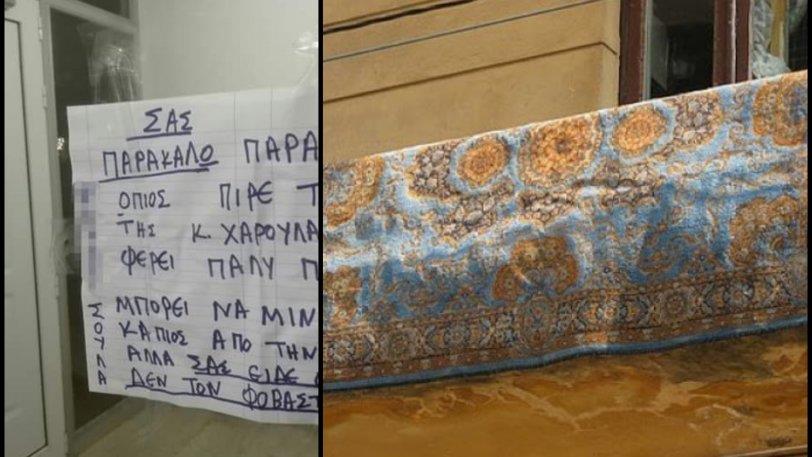 ΣΑΣ
ΠΑΡΑΚΑΛΟ ΠΑΡΑ
ΟΠΙΟΣ ΠΙΡΕ Τ
ΤΗΣ Κ. ΧΑΡΟΥΛΑ
ΦΕΡΕΙ ΠΑΛΥ Π
ΜΠΟΡΕΙ ΝΑ ΜΙΝ
ΚΑΠΙΟΣ ΑΠΟ ΤΗΝ
ΑΛΛΑ ΣΑΣ ΕΙΔΕ
ΔΕΝ ΤΟΝ ΦΟΒΑΣΤ
ΣΟΥΛΑ